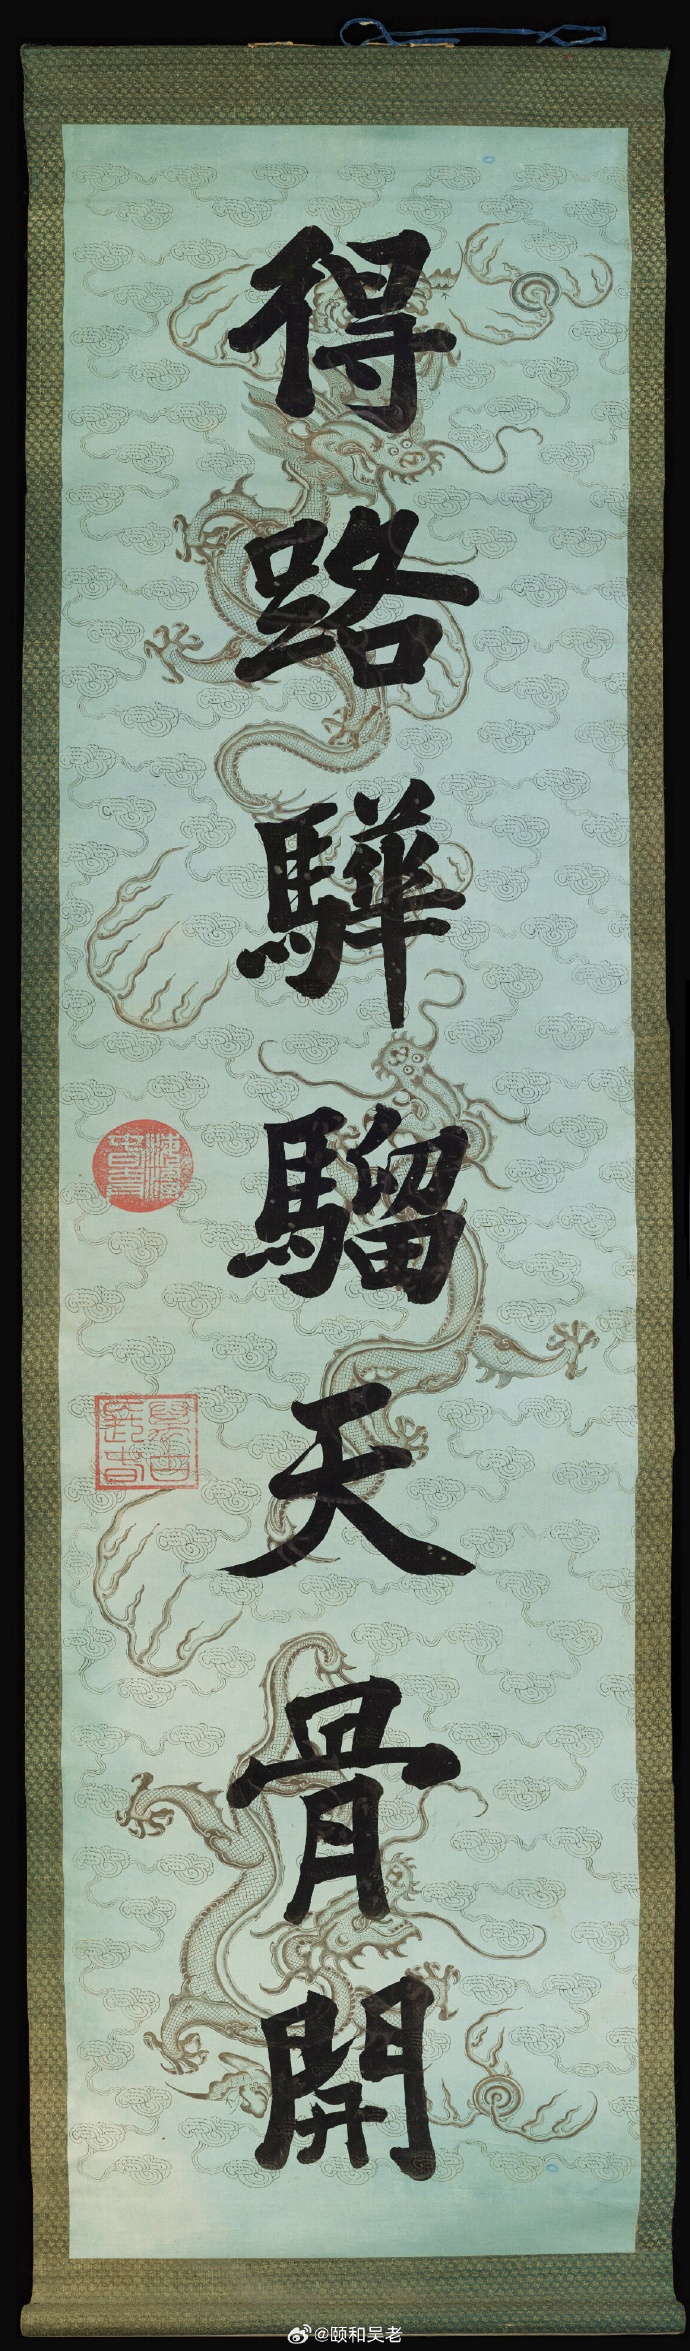 得路驊騮天骨開
@颐和吴老